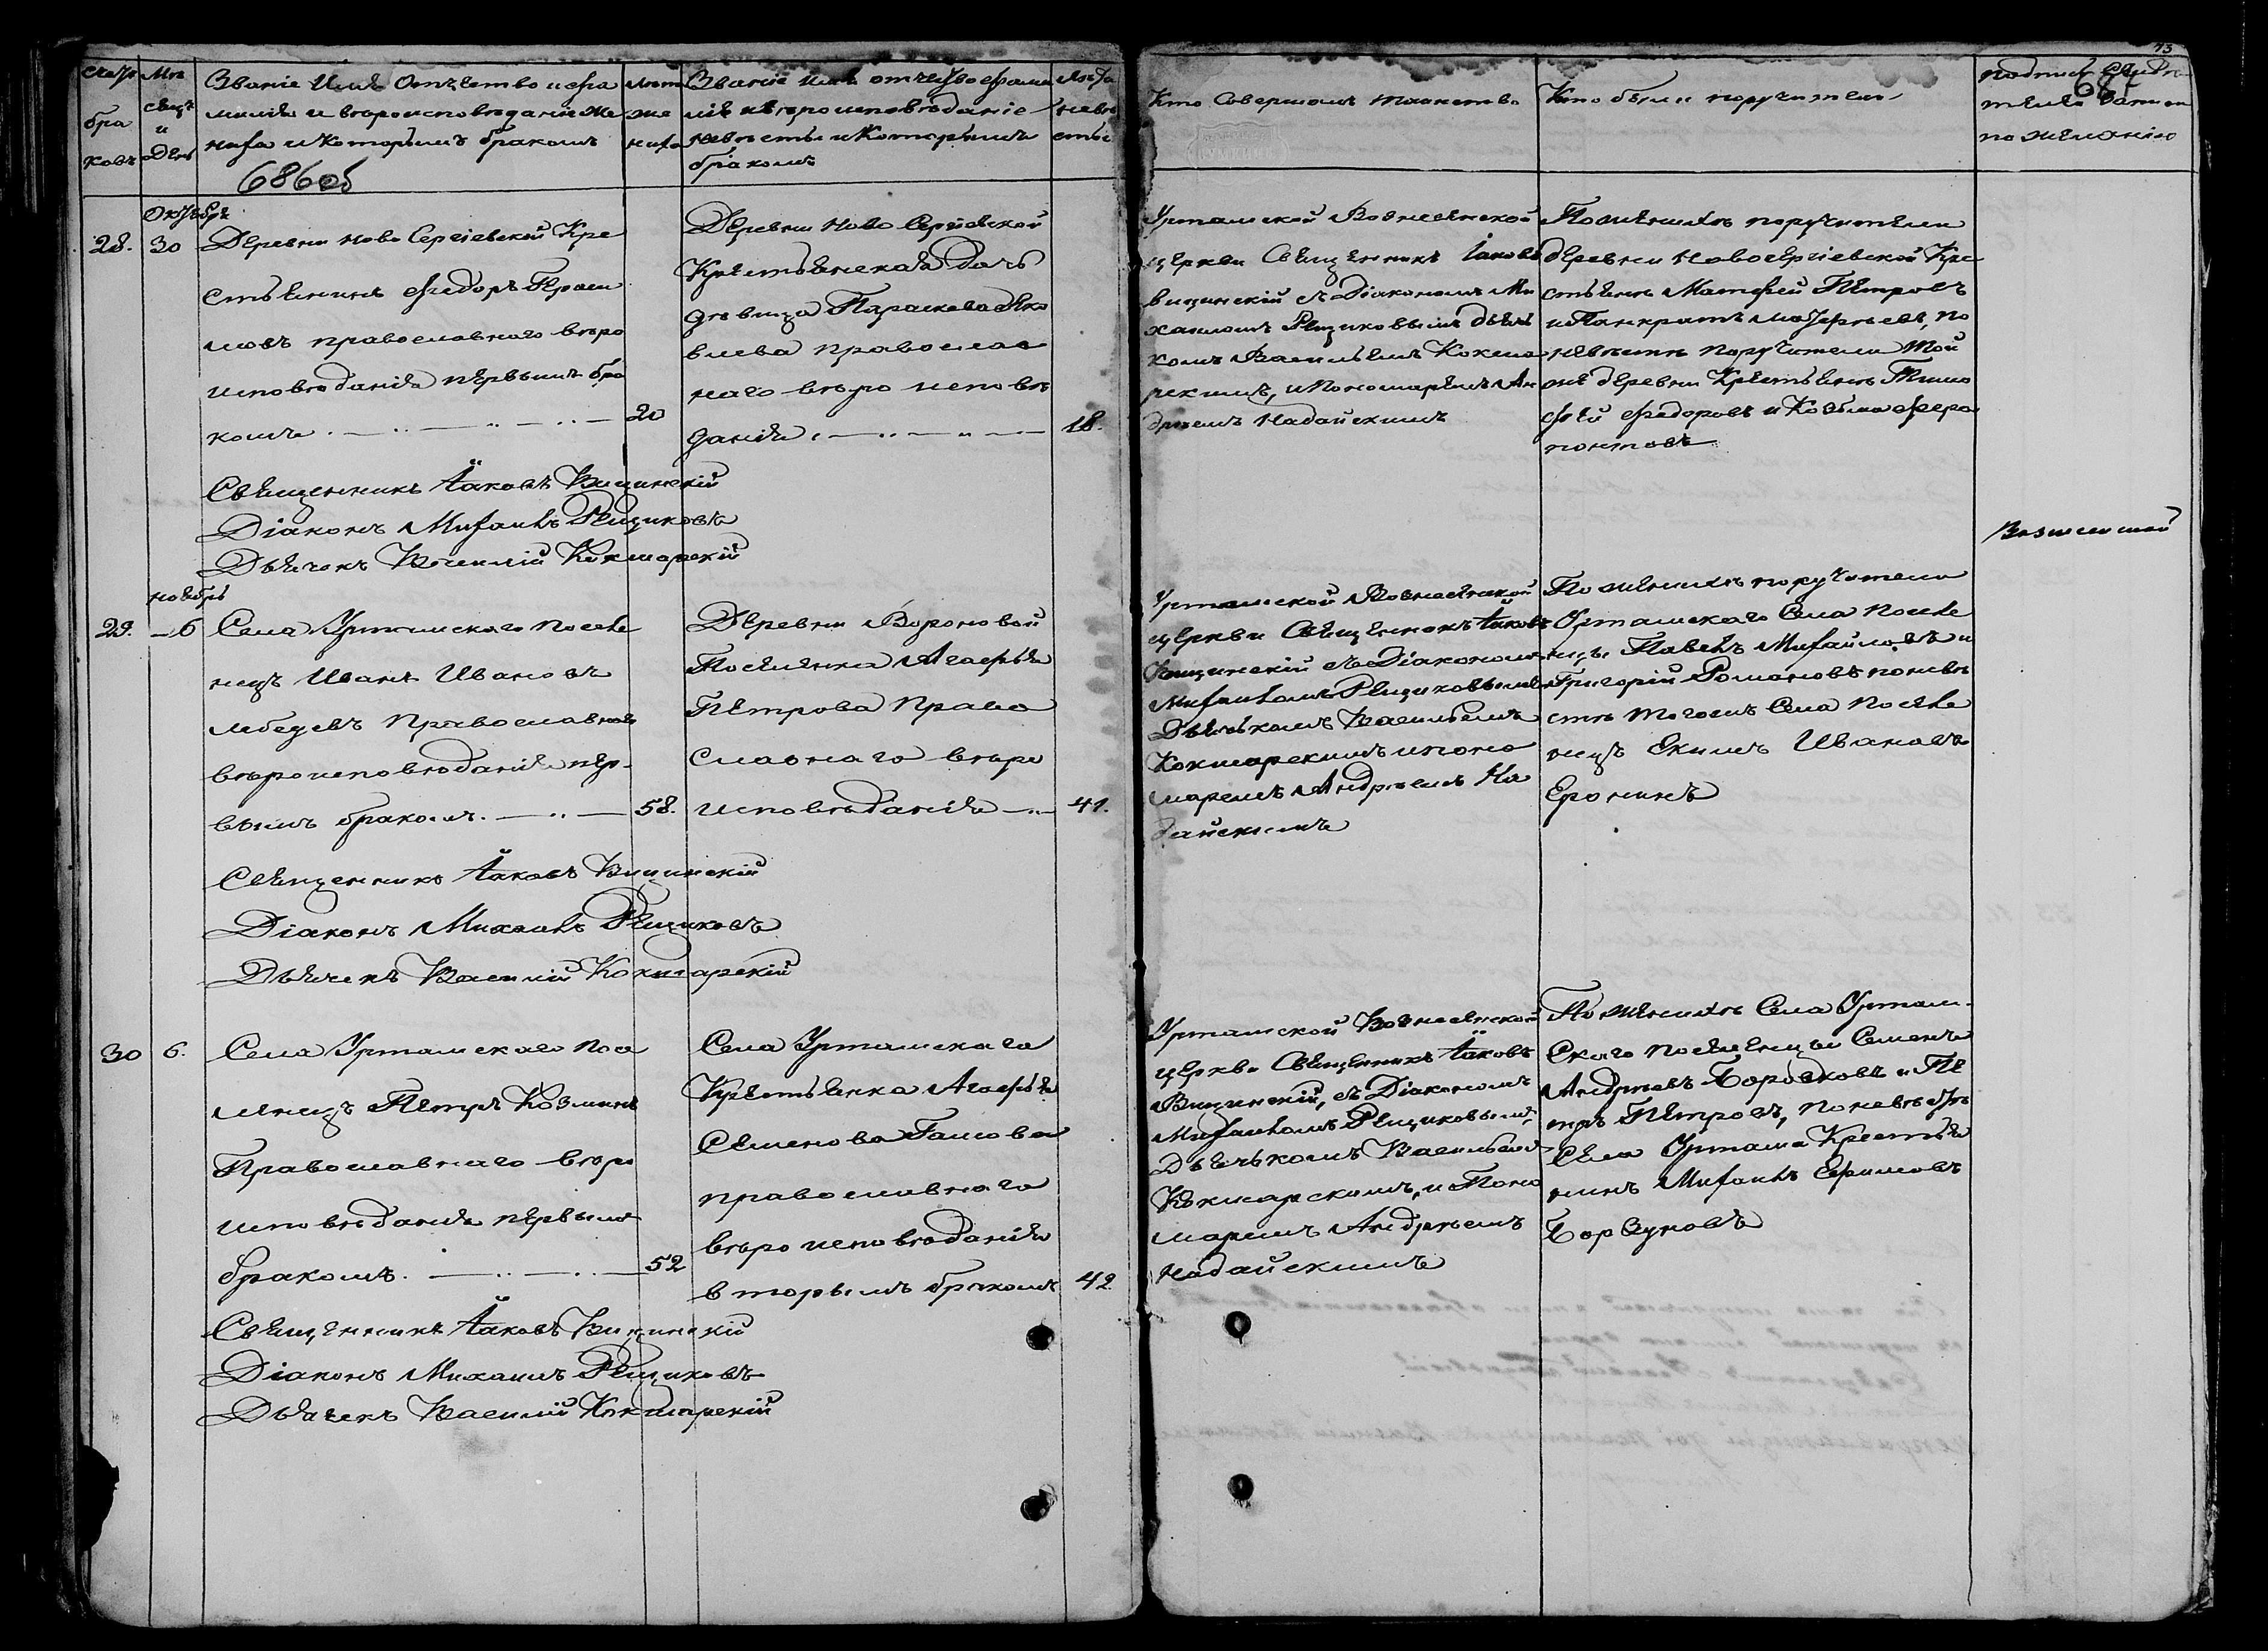 Счетъ браковъ
Мѣсяцъ и День
Званіе Имя Отчество и фа
милія и вѣроисповѣданіе Же
ниха и которымъ бракомъ
686об
Лѣта
же
ниха
Званіе имя отчество фами
лія вѣроисповѣданіе
невѣсты и Которымъ
бракомъ
Лѣта
невѣ
сты
Октябрь
28.
30
Деревни Ново Сергіевской Кре
стьянинъ Федоръ Гераси
мовъ православнаго вѣро
исповѣданія первымъ бра
комъ
20
Деревни Ново Сергіевской
Крестьянская Дочь
девица Параскева Яко
влева православ
наго вѣро исповѣ
данія
18.
Священникъ Іаковъ Вицинскій
Діаконъ Михаилъ Рещиковъ
Дьячекъ Василій Кокшарскій
Ноябрь
29.
6
Села Уртамскаго Поселе
нецъ Иванъ Ивановъ
Лебедевъ Православнаго
вѣроисповѣданія пер
вымъ бракомъ.
58.
Деревни Вороновой
Поселенка Агафья
Петрова Право
славнаго вѣро
исповѣданія
41.
Священникъ Іаковъ Вицинскій
Діаконъ Михаилъ Рещиковъ
Дьячекъ Василій Кокшарскій
30
6.
Села Уртамскаго Посе
ленецъ Петръ Козминъ
Православнаго вѣро
исповѣданія первымъ
бракомъ.
52
Села Уртамскаго
Крестьянка Агафья
Семенова
православнаго
вѣро исповѣданія
вторымъ бракомъ
42.
Священникъ Іаковъ Вицинскій
Діаконъ Михаилъ Рещиковъ
Дьячекъ Василій Кокшарскій
73
Кто Совершалъ таинство
Кто были поручители
подпись
687
по желанію
Уртамской Вознесенской
церкви Священникъ Іаковъ
Вицинскій съ Діакономъ Ми
хаиломъ Рещиковымъ дьяч
комъ Васильемъ Кокша
рскимъ, и Пономаремъ Ан
дреемъ Надайскимъ
По женихѣ поручители
деревни Новосергіевской Кре
стьяне Матфей Петровъ
и Панкратъ по
невѣстѣ поручители той
же деревни Крестьяне Тимо
фей Федоровъ и Козьма Фера
понтовъ
Уртамской Вознесенской
церкви Священникъ Іаковъ
Вицинскій съ Діакономъ
Михаиломъ Рещиковымъ
Дьячькомъ Васильемъ
Кокшарскимъ и поно
маремъ Андреемъ На
дайскимъ
По женихѣ поручители
Уртамскаго Села Поселе
нцы Павелъ Михайловъ и
Григорій Романовъ по невѣ
стѣ тогожъ Села Поселе
нецъ Екимъ Ивановъ
Еронинъ
Уртамской Вознесенской
церкви Священникъ Іаковъ
Вицинскій, съ Діакономъ
Михаиломъ Рещиковымъ,
Дьячькомъ Васильемъ
Кокшарскимъ, и Поно
маремъ Андреемъ
Надайскимъ
По женихѣ Села Уртам
скаго поселенцы Семенъ
Андреевъ Боровковъ и Пе
тръ Петровъ, по невѣстѣ
Села Уртама Крестья
нинъ Михаилъ Ефимовъ